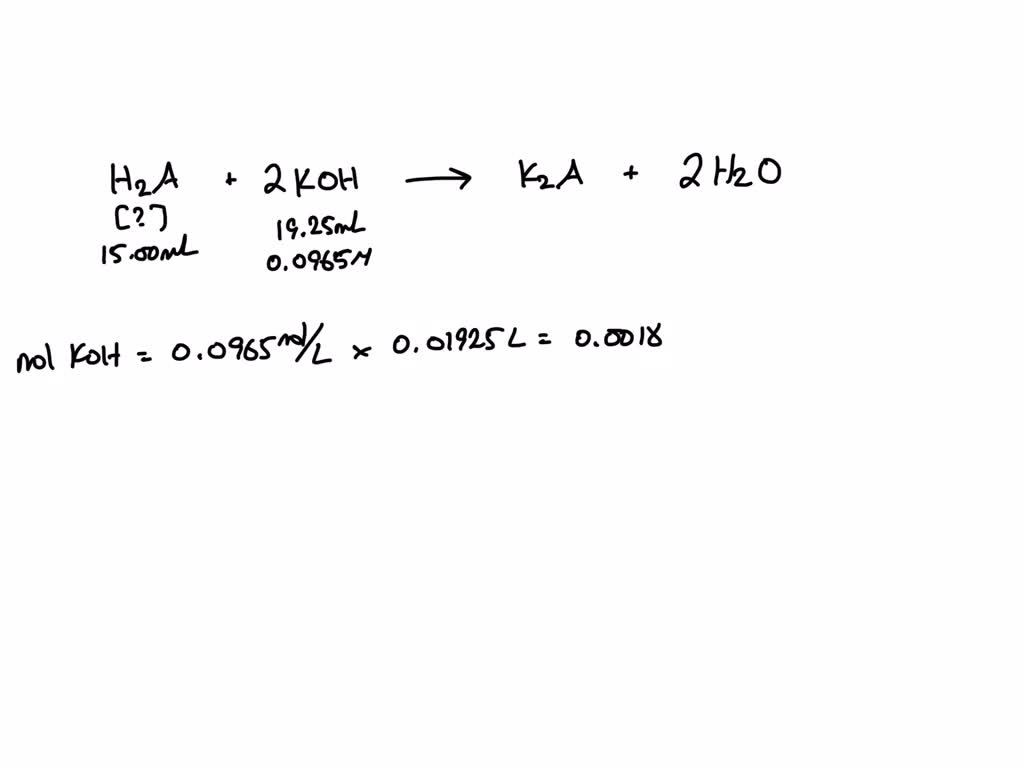 H₂A + 2KOH ⟶ K₂A + 2H₂O
[?] 19.25mL
15.00mL 0.0965M
mol KOH = 0.0965 mol/L × 0.01925 L = 0.0018